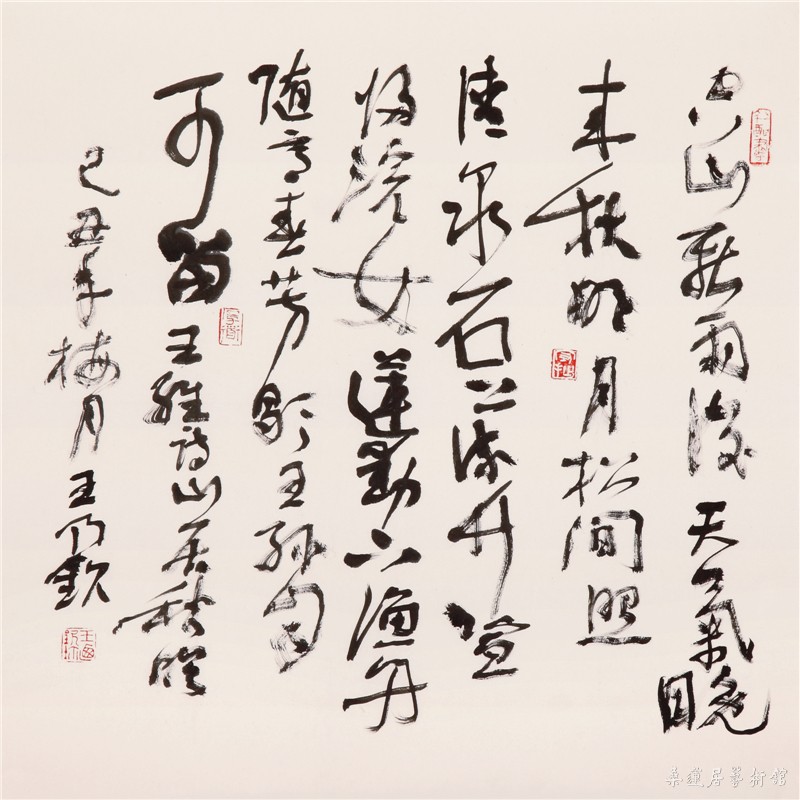 空山新雨後天氣晚
来秋明月松間照
清泉石上流竹喧
归浣女蓮動下漁舟
随意春芳歇王孫自
可留王維詩山居秋暝
己丑年梅月王乃欽
桑蓮居藝術館